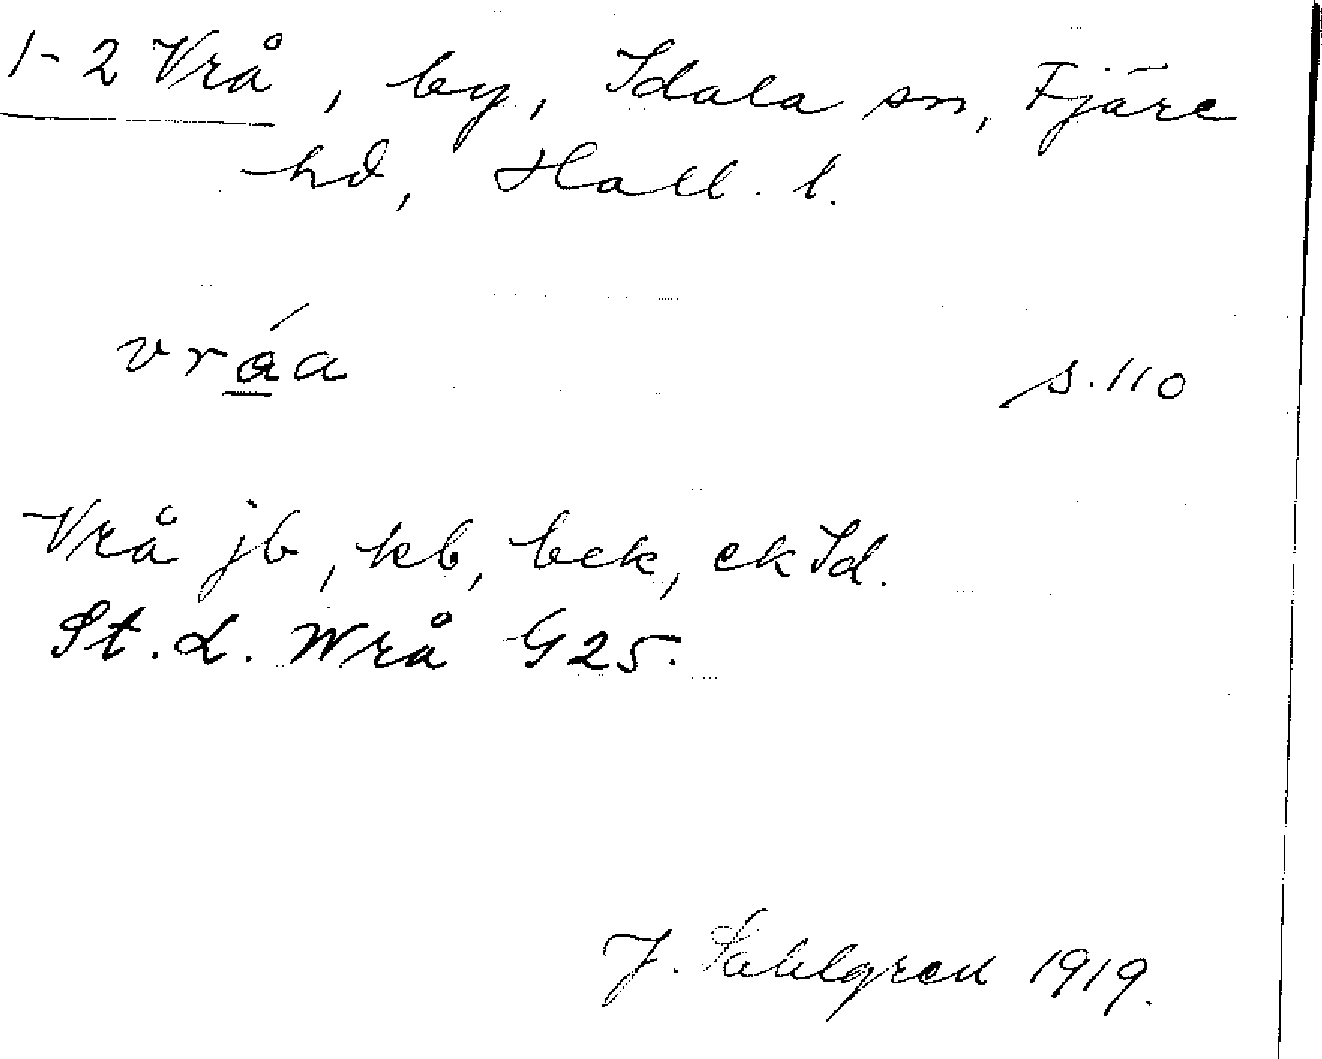 1-2 Vrå, by, Idala sn, Fjäre
hd, Hall. l.
vráa s. 110
Vrå jb, kb, bek, ek Id.
St. L. Wrå G 25.
J. Sahlgren 1919.